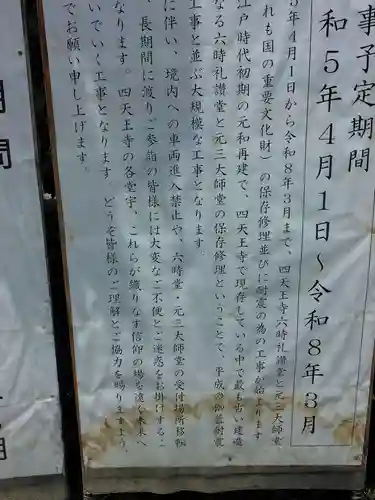 事予定期間
和5年4月1日〜令和8年3月
5年4月1日から令和8年3月まで、四天王寺六時礼讃堂と元三大師堂
れも国の重要文化財）の保存修理並びに耐震の為の工事が始まります
江戸時代初期の元和再建で、四天王寺で現存している中で最も古い建造
なる六時礼讃堂と元三大師堂の保存修理ということで、平成の伽藍耐震
工事と並ぶ大規模な工事となります。
に伴い、境内への車両進入禁止や、六時堂・元三大師堂の受付場所移転
、長期間に渡りご参詣の皆様には大変なご不便とご迷惑をお掛けするこ
なります。四天王寺の各堂宇、これらが織りなす信仰の場を遠く未来へ
いでいく工事となります どうぞ皆様のご理解とご協力を賜りますよう、
でお願い申し上げます。
期間